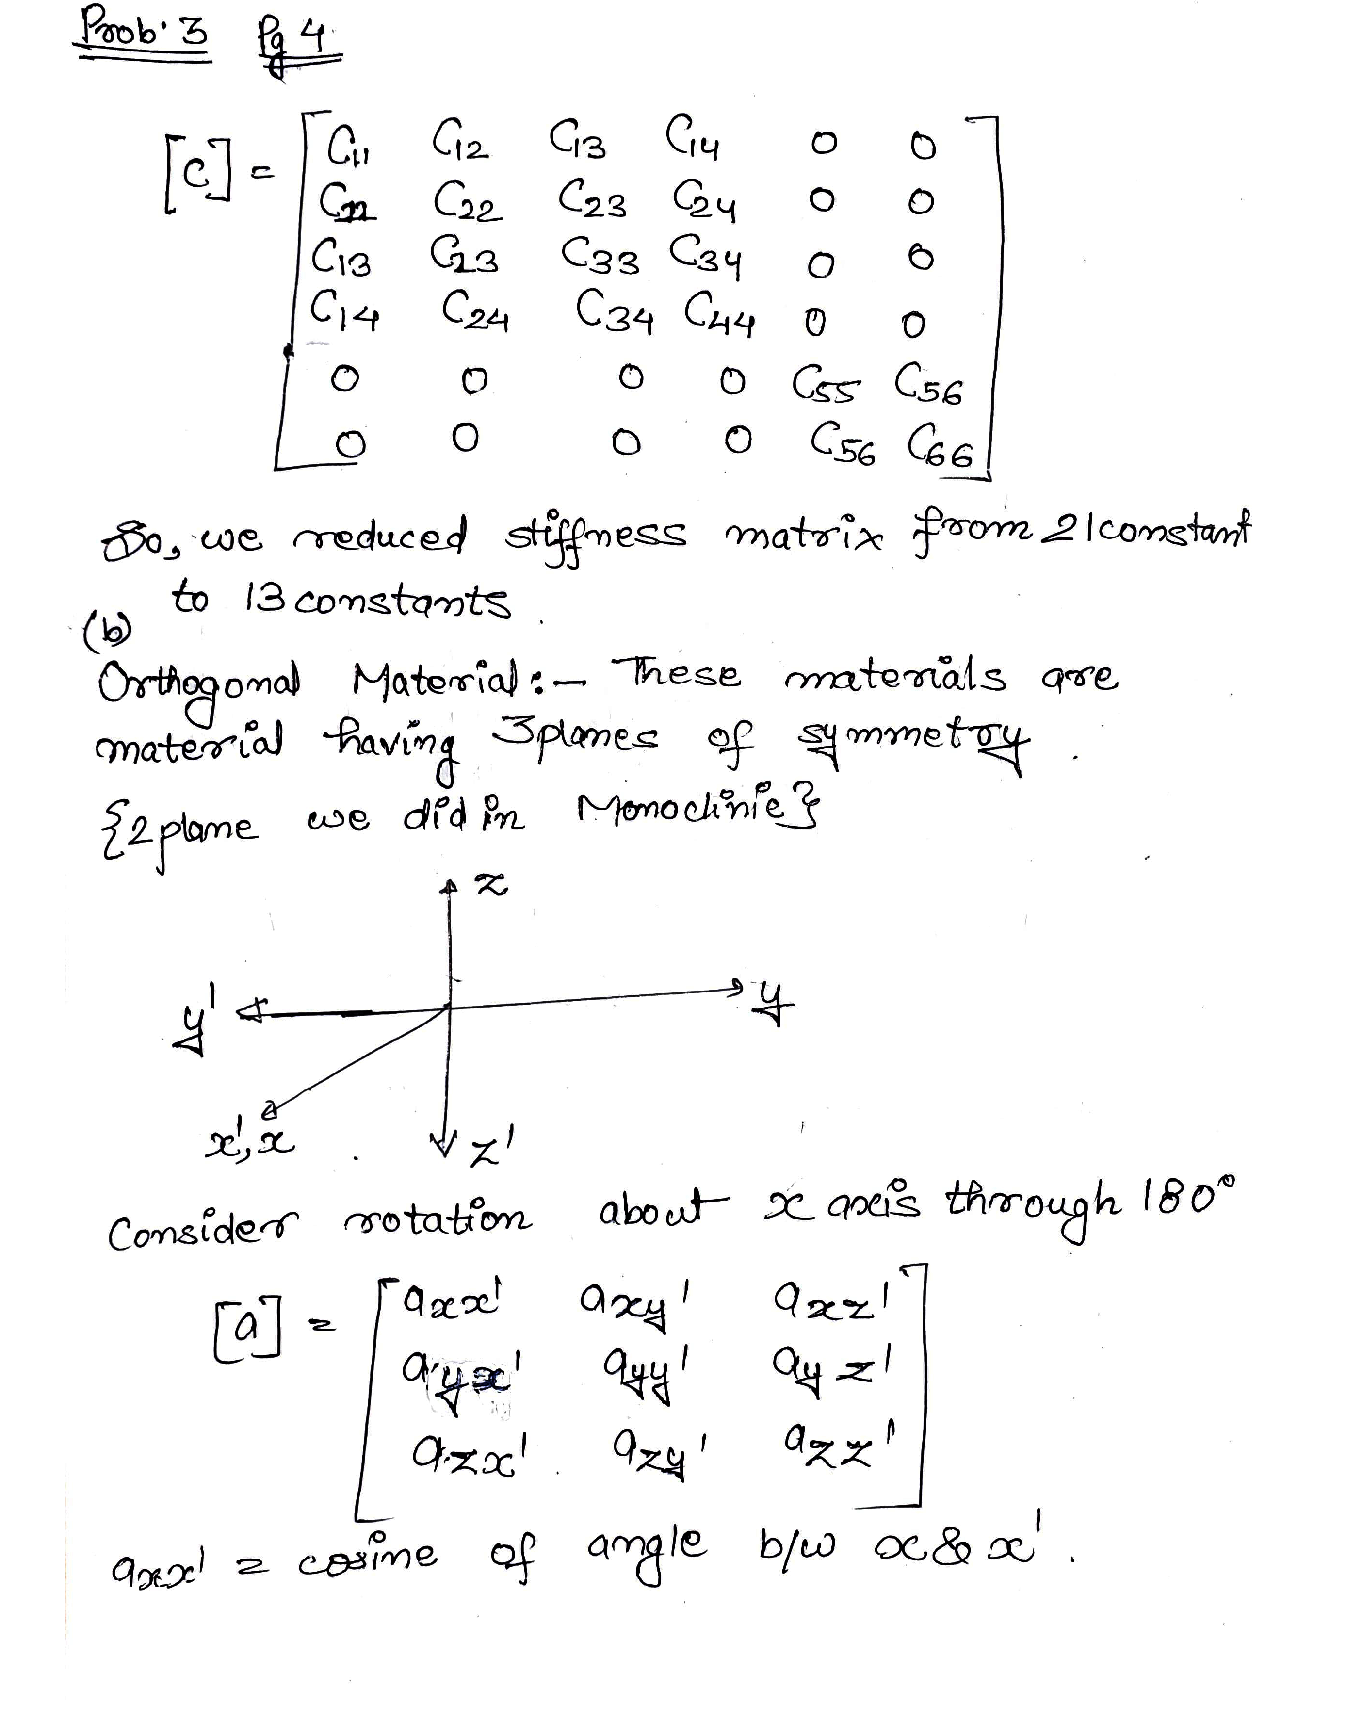 Prob. 3 Pg 4.
[C] = [ C11 C12 C13 C14 0 0
C12 C22 C23 C24 0 0
C13 C23 C33 C34 0 0
C14 C24 C34 C44 0 0
0 0 0 0 C55 C56
0 0 0 0 C56 C66 ]
So, we reduced stiffness matrix from 21 constant
to 13 constants.
(b)
Orthogonal Material :- These materials are
material having 3 planes of symmetry.
{2 plane we did in Monoclinic}
z
y' y
x', x z'
Consider rotation about x axis through 180°
[a] = [ axx' axy' axz'
ayx' ayy' ayz'
azx' azy' azz' ]
axx' = cosine of angle b/w x & x'.